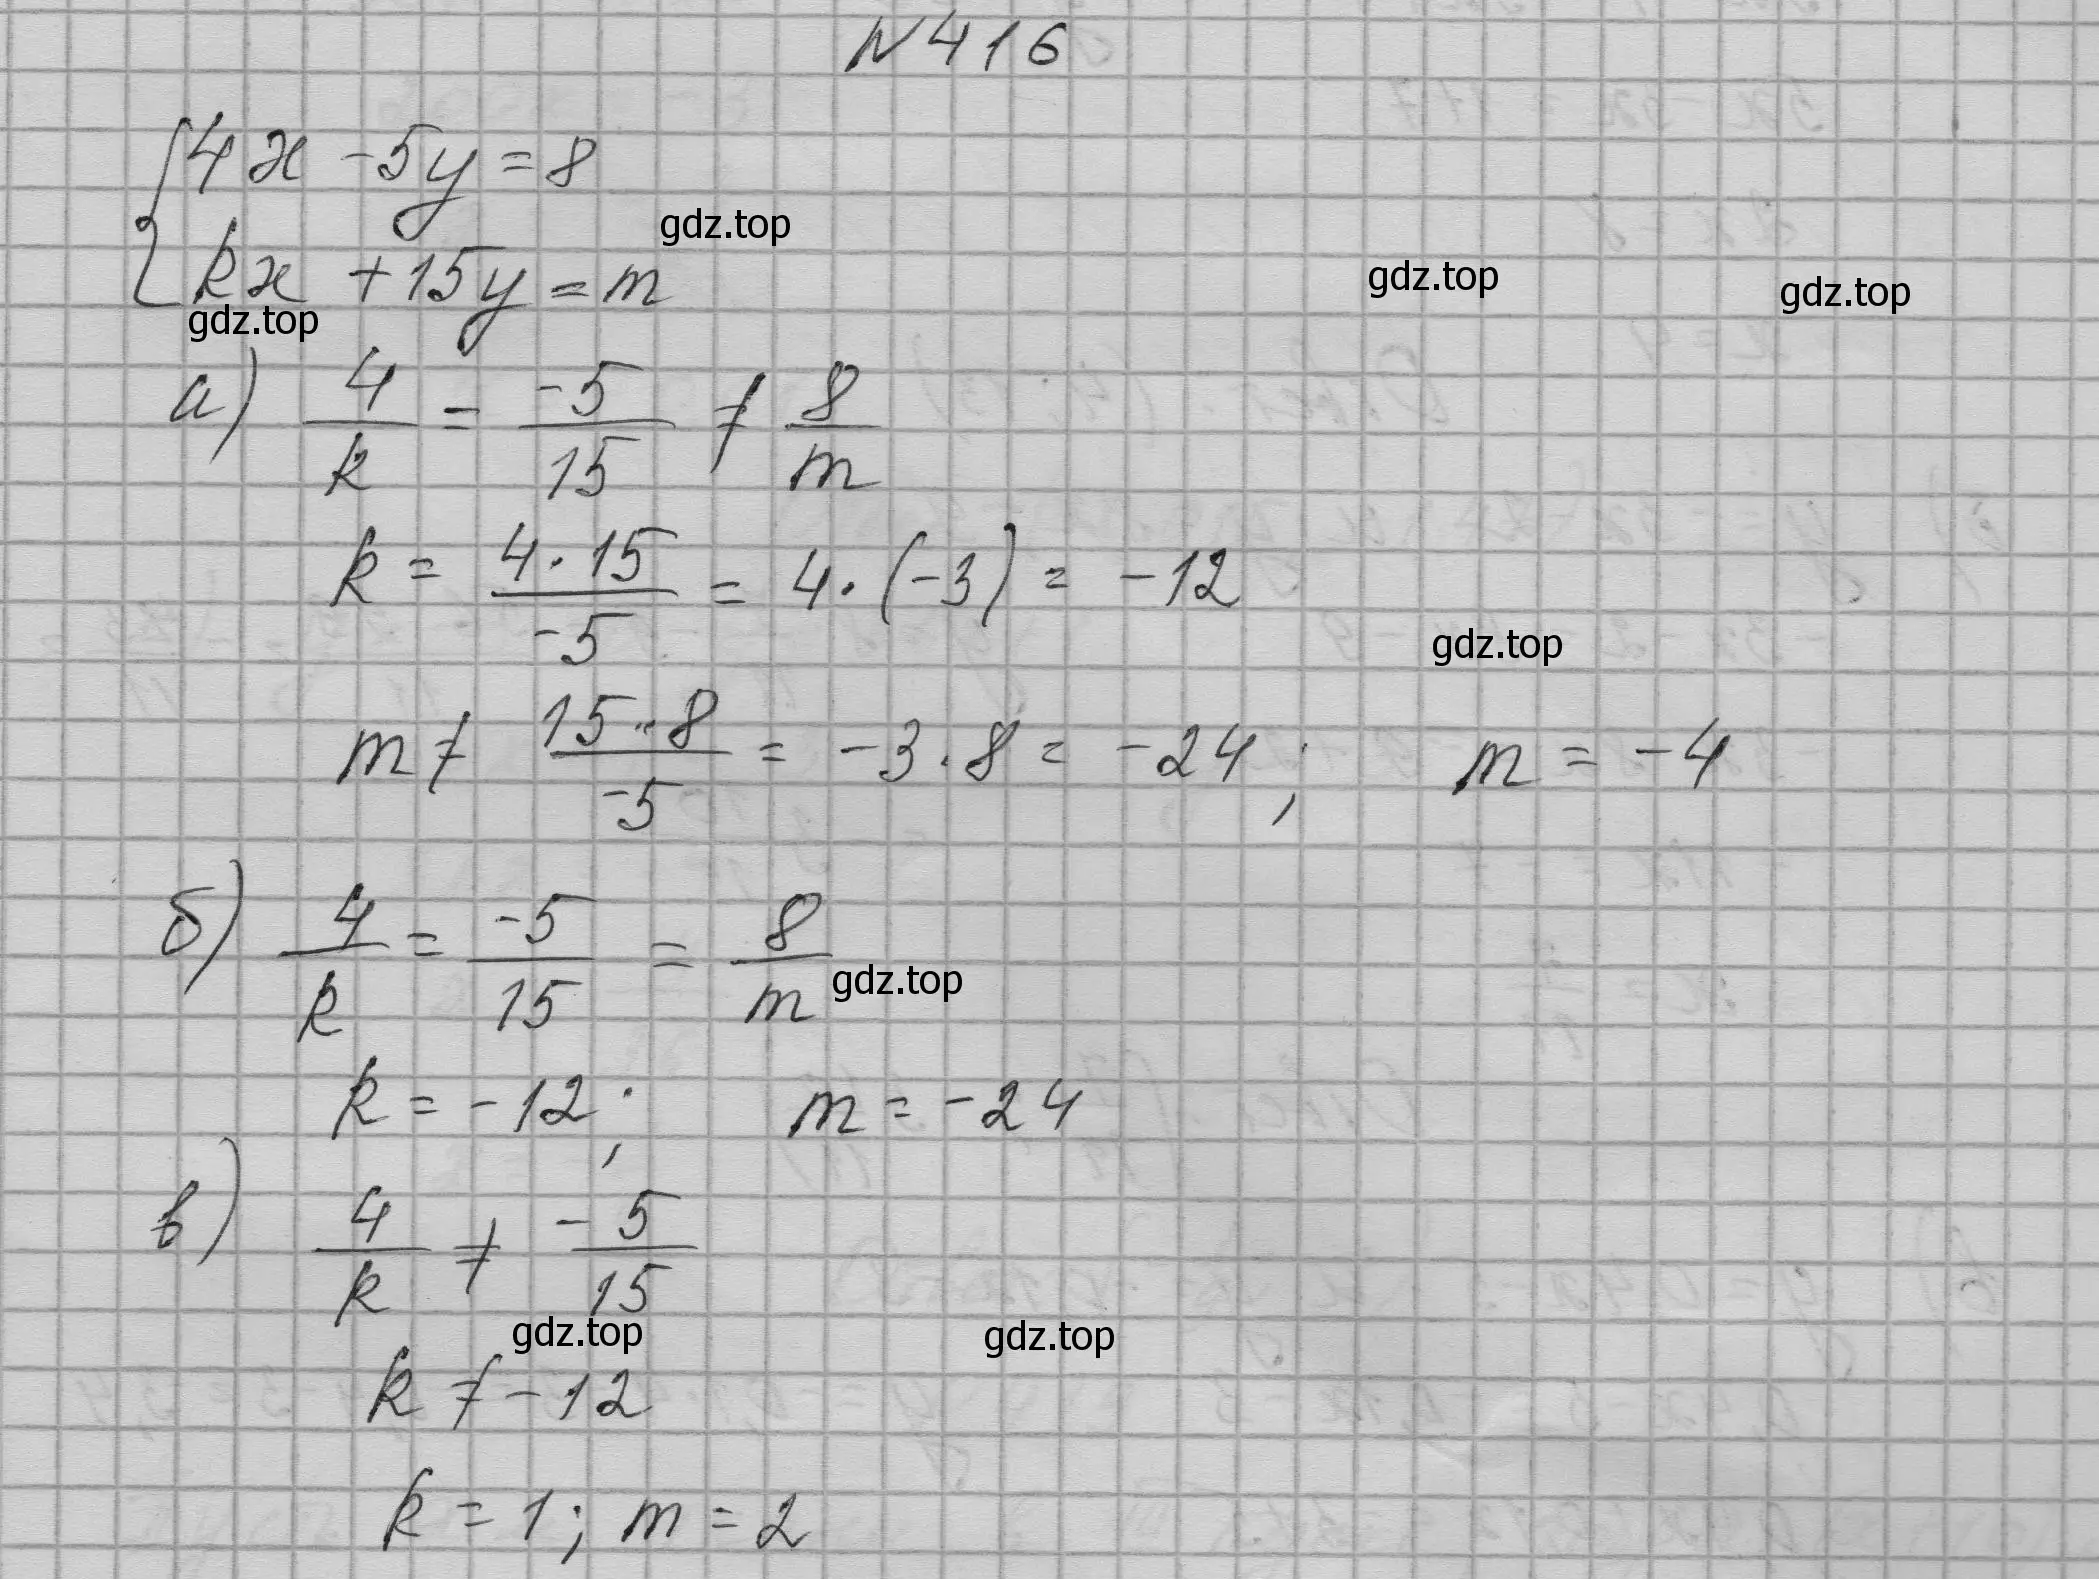 N 416
{ 4x - 5y = 8
gdz.top
kx + 15y = m
gdz.top gdz.top gdz.top
а) 4/k = -5/15 ≠ 8/m
k = 4·15/-5 = 4·(-3) = -12
gdz.top
m ≠ 15·8/-5 = -3·8 = -24; m = -4
б) 4/k = -5/15 = 8/m
gdz.top
k = -12; m = -24
в) 4/k ≠ -5/15
gdz.top gdz.top
k ≠ -12
k = 1; m = 2